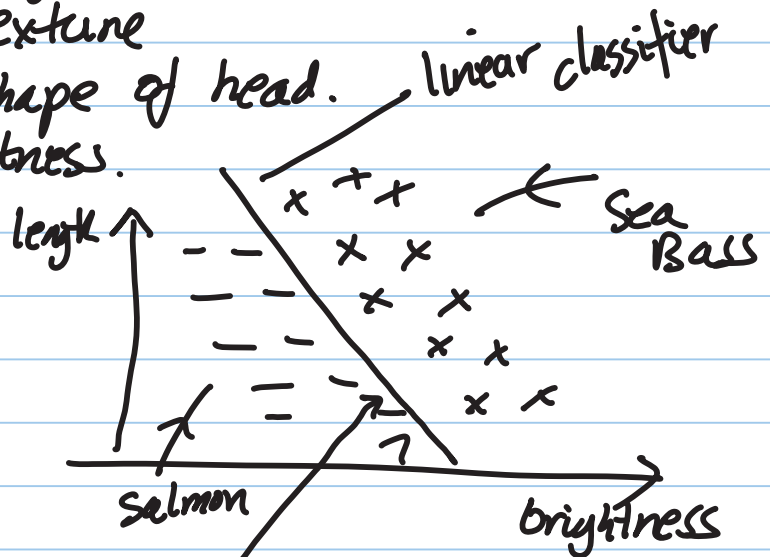 exture
hape of head.
linear classifier
tness.
length
Sea
Bass
salmon
brightness